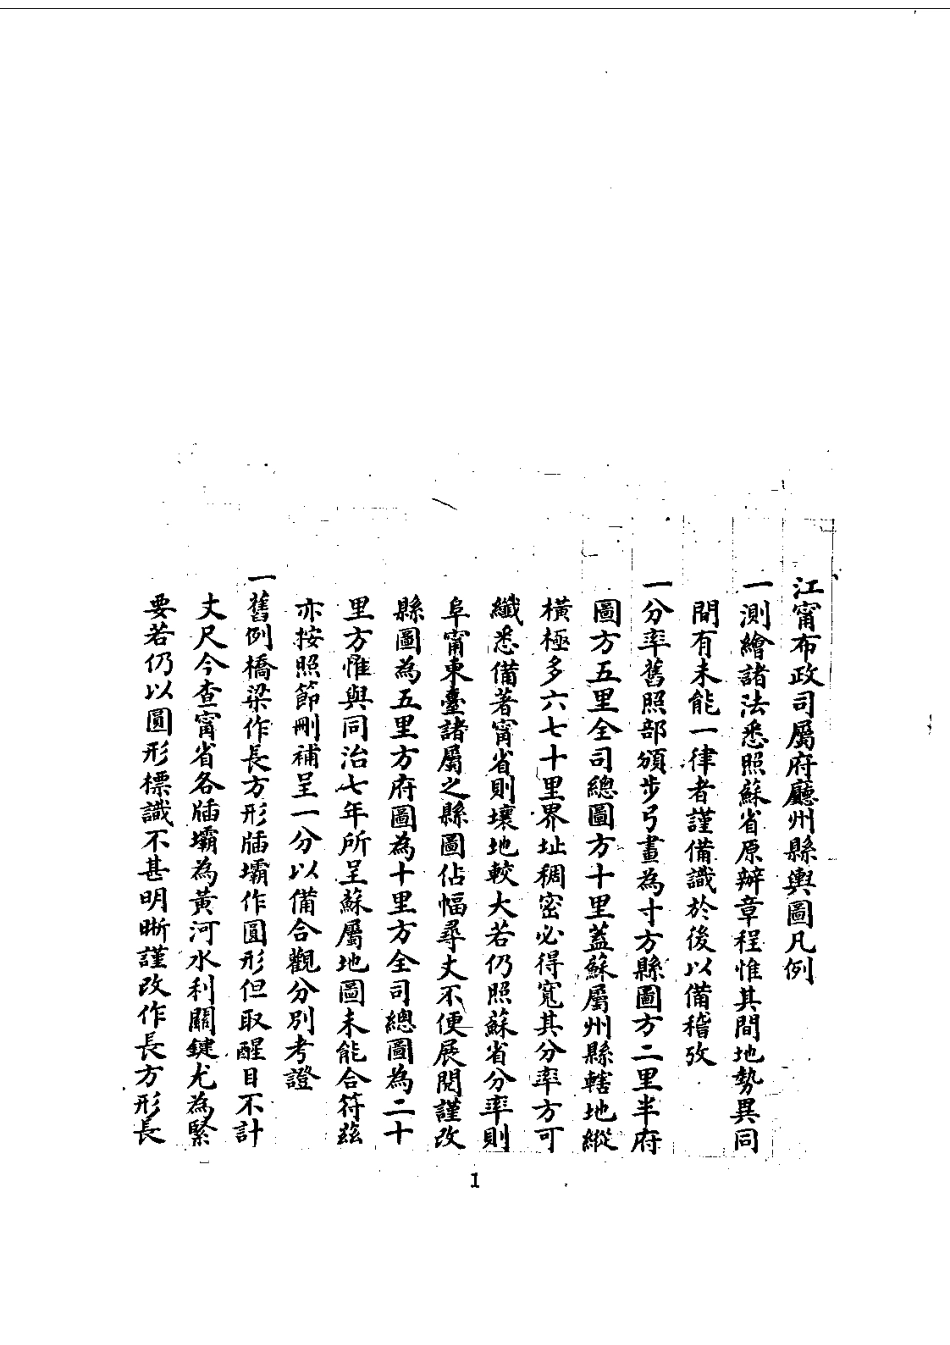 江甯布政司屬府廳州縣輿圖凡例
一測繪諸法悉照蘇省原辦章程惟其間地勢異同
間有未能一律者謹備識於後以備稽攷
一分率舊照部頒步弓畫為寸方縣圖方二里半府
圖方五里全司總圖方十里蓋蘇屬州縣轄地縱
橫極多六七十里界址稠密必得寬其分率方可
纖悉備著甯省則壤地較大若仍照蘇省分率則
阜甯東臺諸屬之縣圖佔幅尋丈不便展閱謹改
縣圖為五里方府圖為十里方全司總圖為二十
里方惟與同治七年所呈蘇屬地圖未能合符茲
亦按照節刪補呈一分以備合觀分別考證
一舊例橋梁作長方形牐壩作圓形但取醒目不計
丈尺今查甯省各牐壩為黃河水利關鍵尤為緊
要若仍以圓形標識不甚明晰謹改作長方形長
1